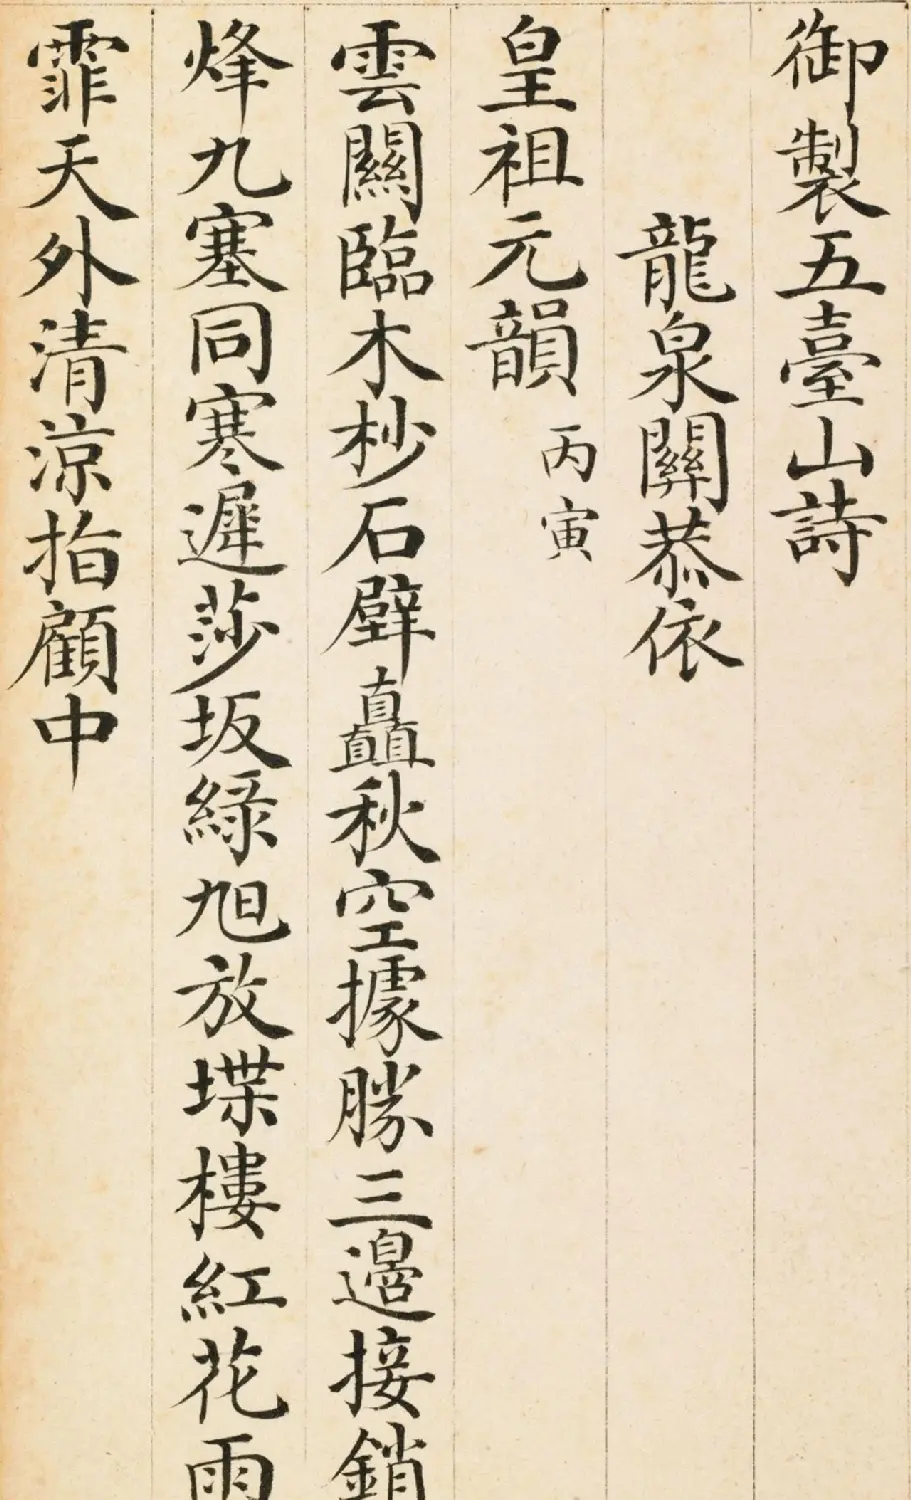 御製五臺山詩
龍泉關恭依
皇祖元韻 丙寅
雲關臨木杪石壁矗秋空據勝三邊接銷
烽九塞同寒遲莎坂綠旭放堞樓紅花雨
霏天外清涼指顧中